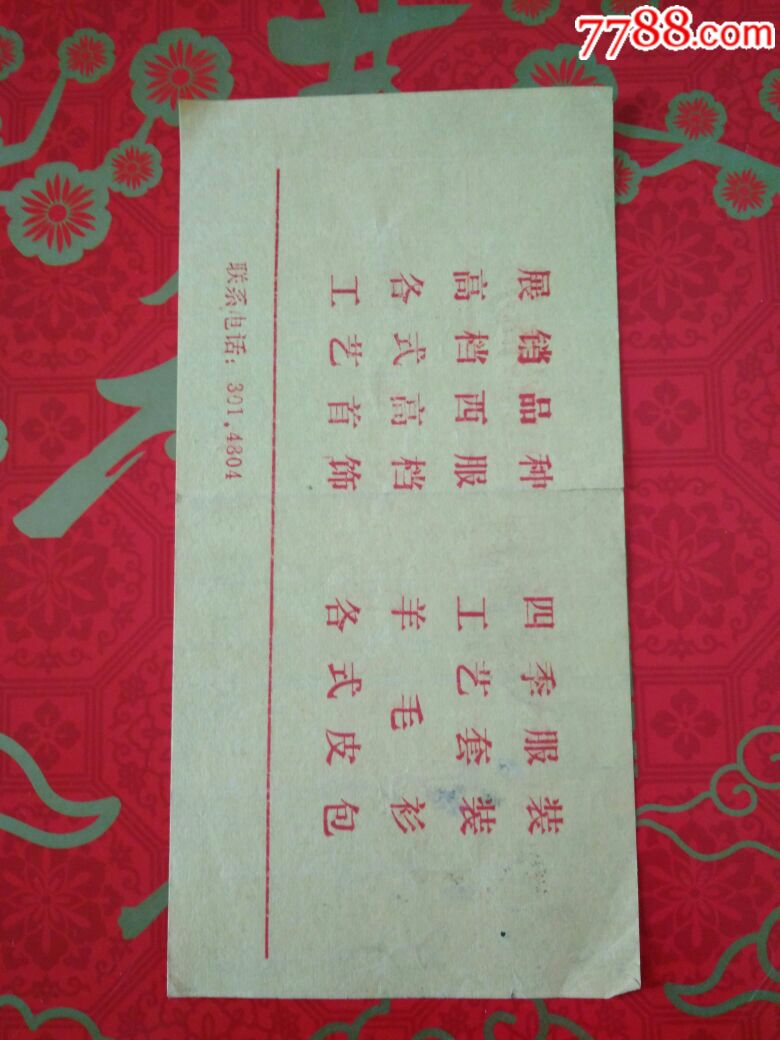 7788.com
展销品种 四季服装
高档西服 工艺套装
各式高档 羊毛衫
工艺首饰 各式皮包
联系电话：301,4804